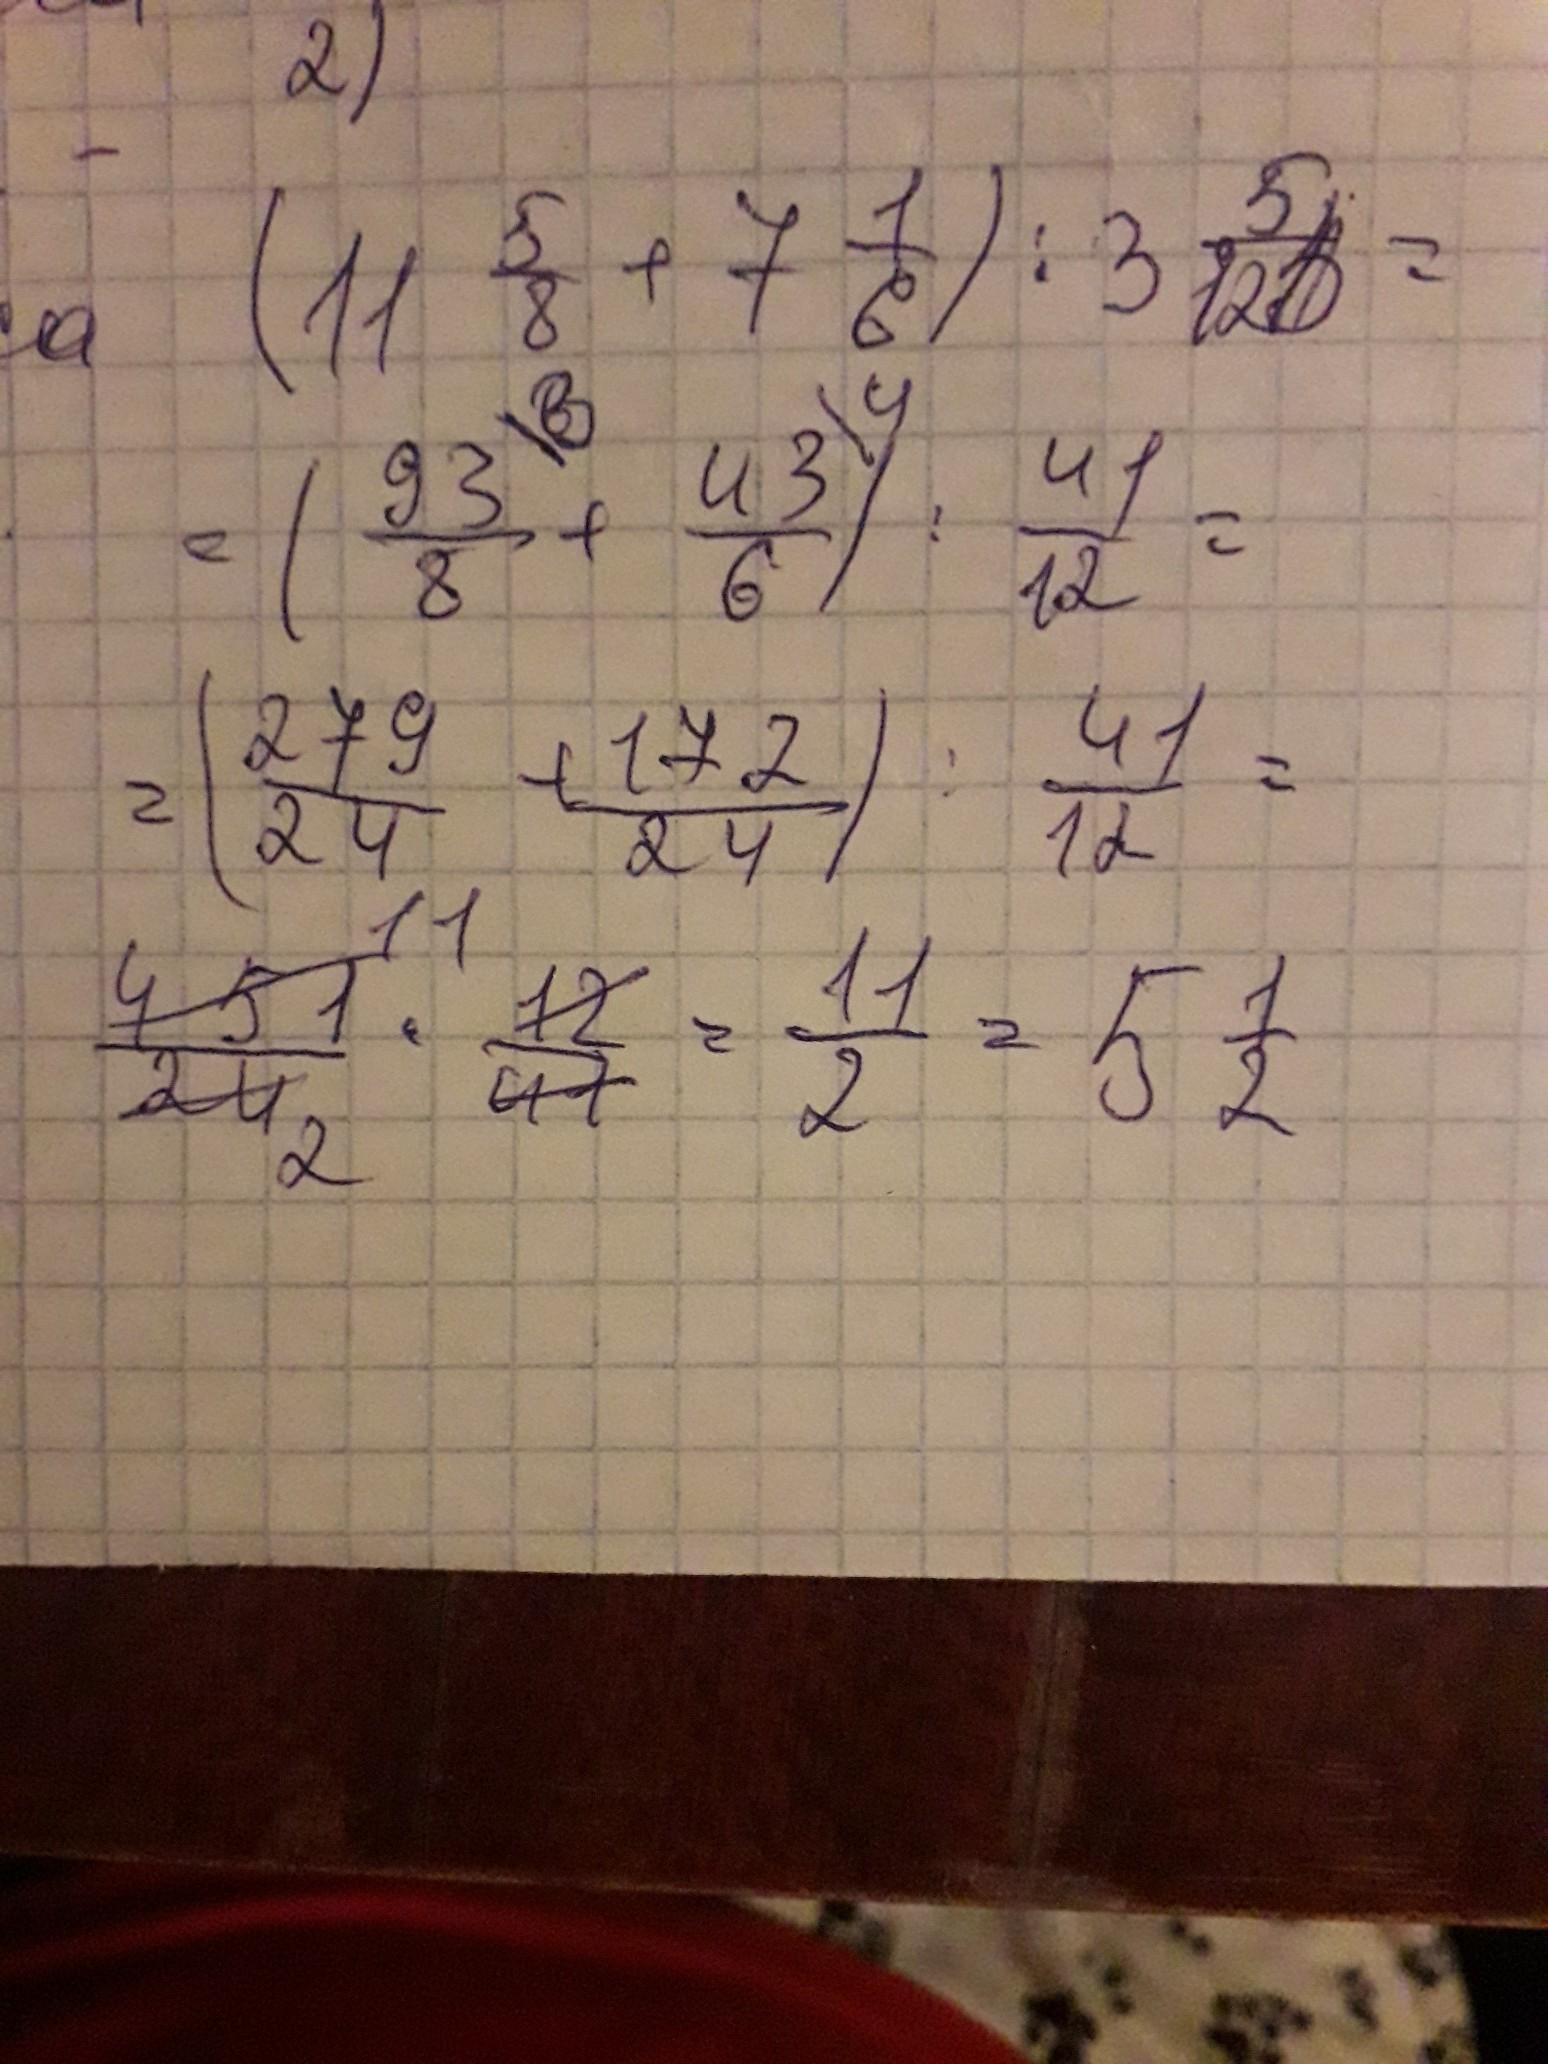 2)
(11 5/8 + 7 1/6) : 3 5/12 =
= (93/8 \3 + 43/6 \4) : 41/12 =
= (279/24 + 172/24) : 41/12 =
451/24 11 2 · 12/41 = 11/2 = 5 1/2